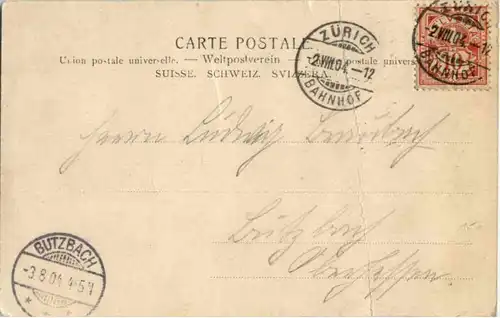 CARTE POSTALE
Union postale universelle. — Weltpostverein — postale univers
SUISSE. SCHWEIZ. SVIZZERA.
ZÜRICH
-2.VIII.04.-12
BAHNHOF
-2.VIII.04.-12
BAHNHOF
Herrn Ludwig
Butzbach
BUTZBACH
-3.8.04.4-5N